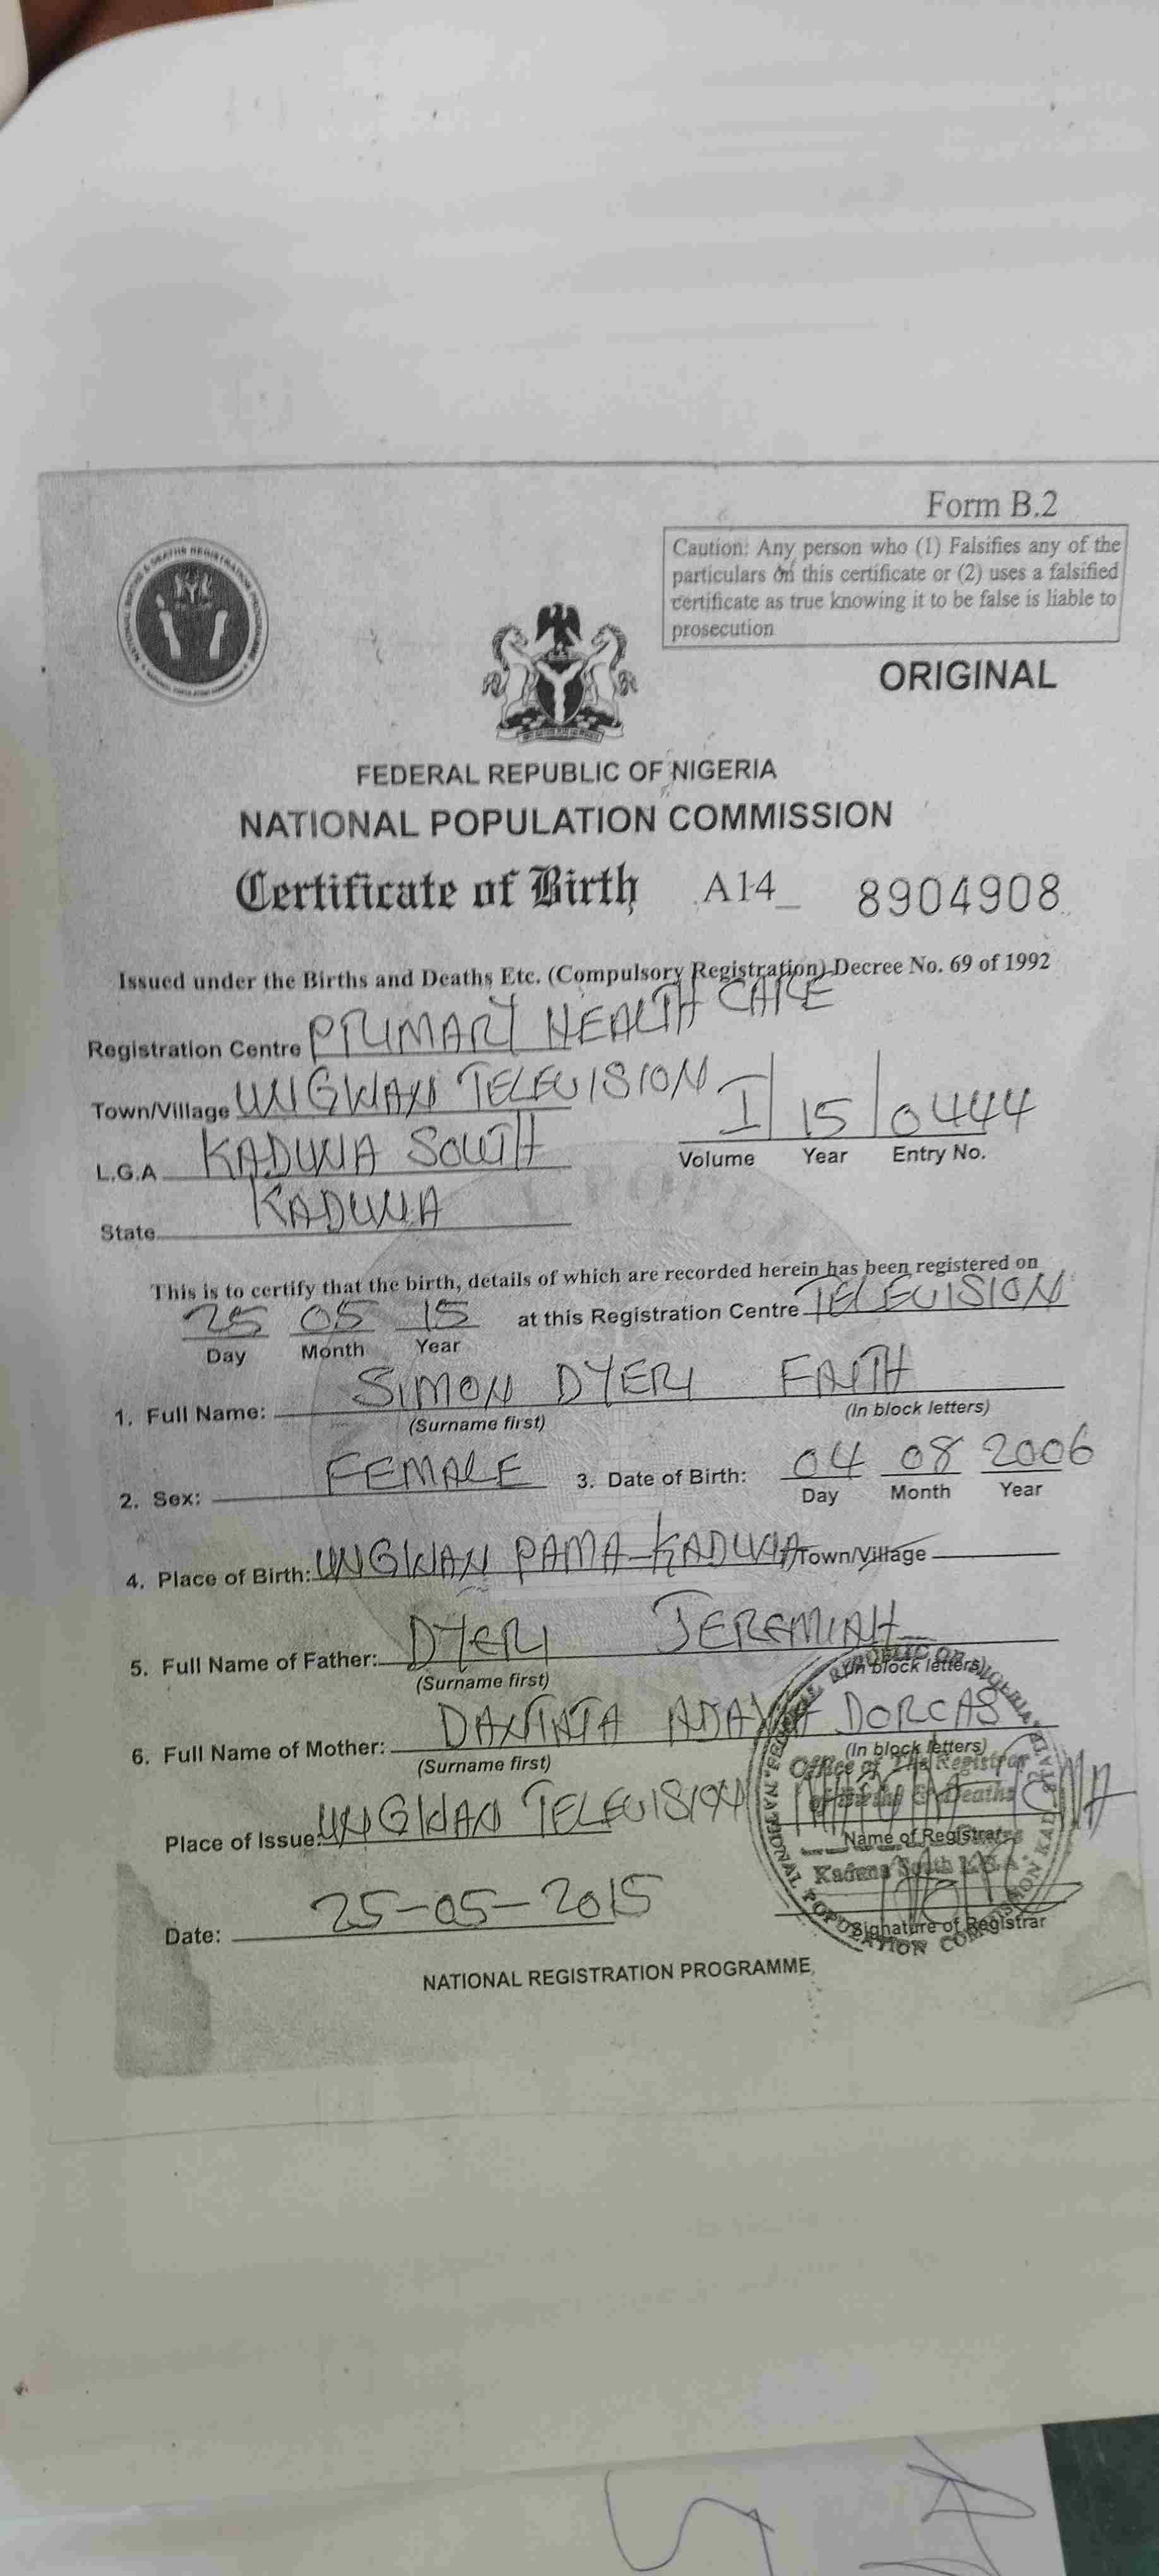 Form B.2
Caution: Any person who (1) Falsifies any of the
particulars on this certificate or (2) uses a falsified
certificate as true knowing it to be false is liable to
prosecution
ORIGINAL
FEDERAL REPUBLIC OF NIGERIA
NATIONAL POPULATION COMMISSION
Certificate of Birth A14_ 8904908
Issued under the Births and Deaths Etc. (Compulsory Registration) Decree No. 69 of 1992
Registration Centre PRIMARY HEALTH CARE
Town/Village UNGWAN TELEVISION
I 15 0444
Volume Year Entry No.
L.G.A KADUNA SOUTH
State KADUNA
This is to certify that the birth, details of which are recorded herein has been registered on
25 05 15 at this Registration Centre TELEVISION
Day Month Year
1. Full Name: SIMON DYERI FAITH
(Surname first) (In block letters)
2. Sex: FEMALE 3. Date of Birth: 04 08 2006
Day Month Year
4. Place of Birth: UNGWAN PAMA-KADUNA Town/Village
5. Full Name of Father: DYERI JEREMIAH
(Surname first) (In block letters)
6. Full Name of Mother: DORCAS
(Surname first) (In block letters)
Office of The Registrar
of Births & Deaths
Place of Issue: UNGWAN TELEVISION
Name of Registrar
Kaduna South L.G.A.
Date: 25-05-2015
Signature of Registrar
NATIONAL REGISTRATION PROGRAMME